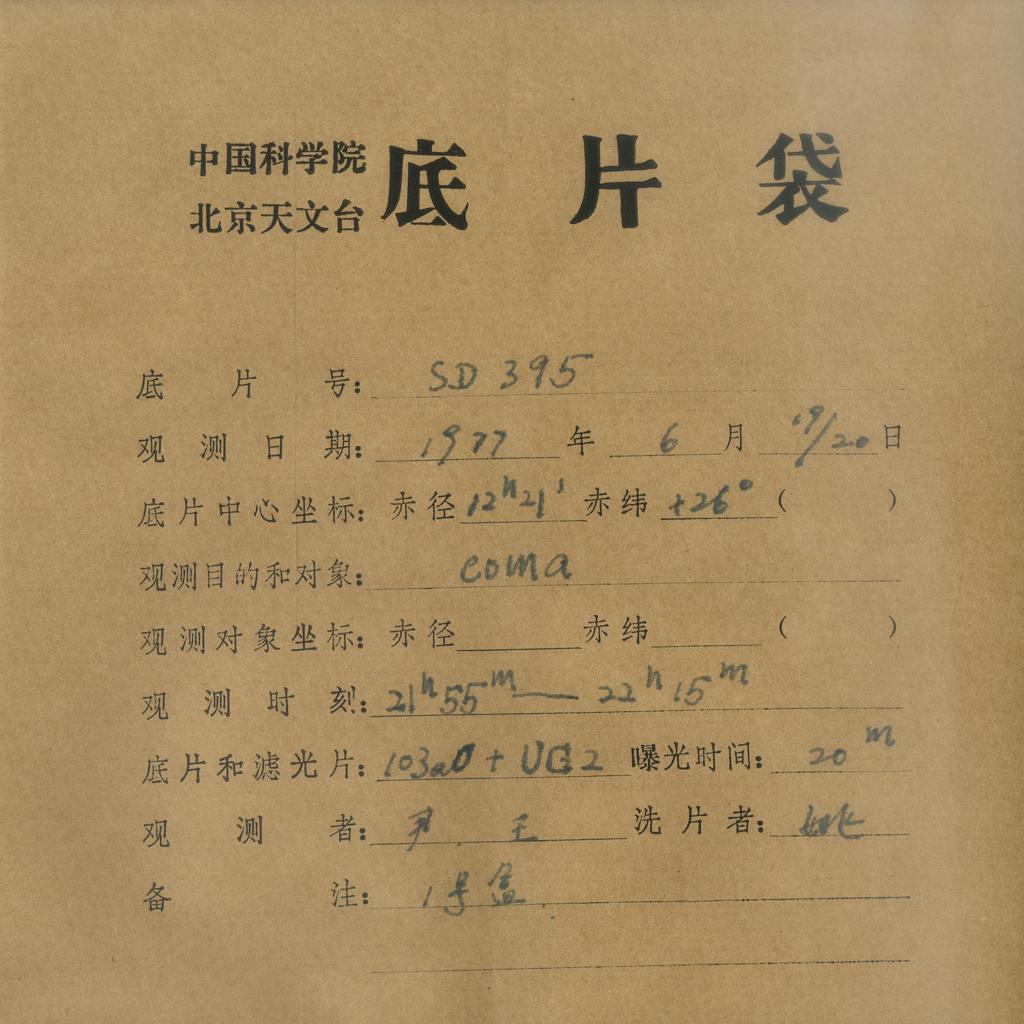 中国科学院
北京天文台
底片袋
底片号: SD 395
观测日期: 1977年 6月 19/20日
底片中心坐标: 赤径 12h21' 赤纬 +26° ( )
观测目的和对象: coma
观测对象坐标: 赤径 赤纬 ( )
观测时刻: 21h55m — 22h15m
底片和滤光片: 103aO + UG2 曝光时间: 20m
观测者: 尹 王 洗片者: 姚
备注: 1号盒